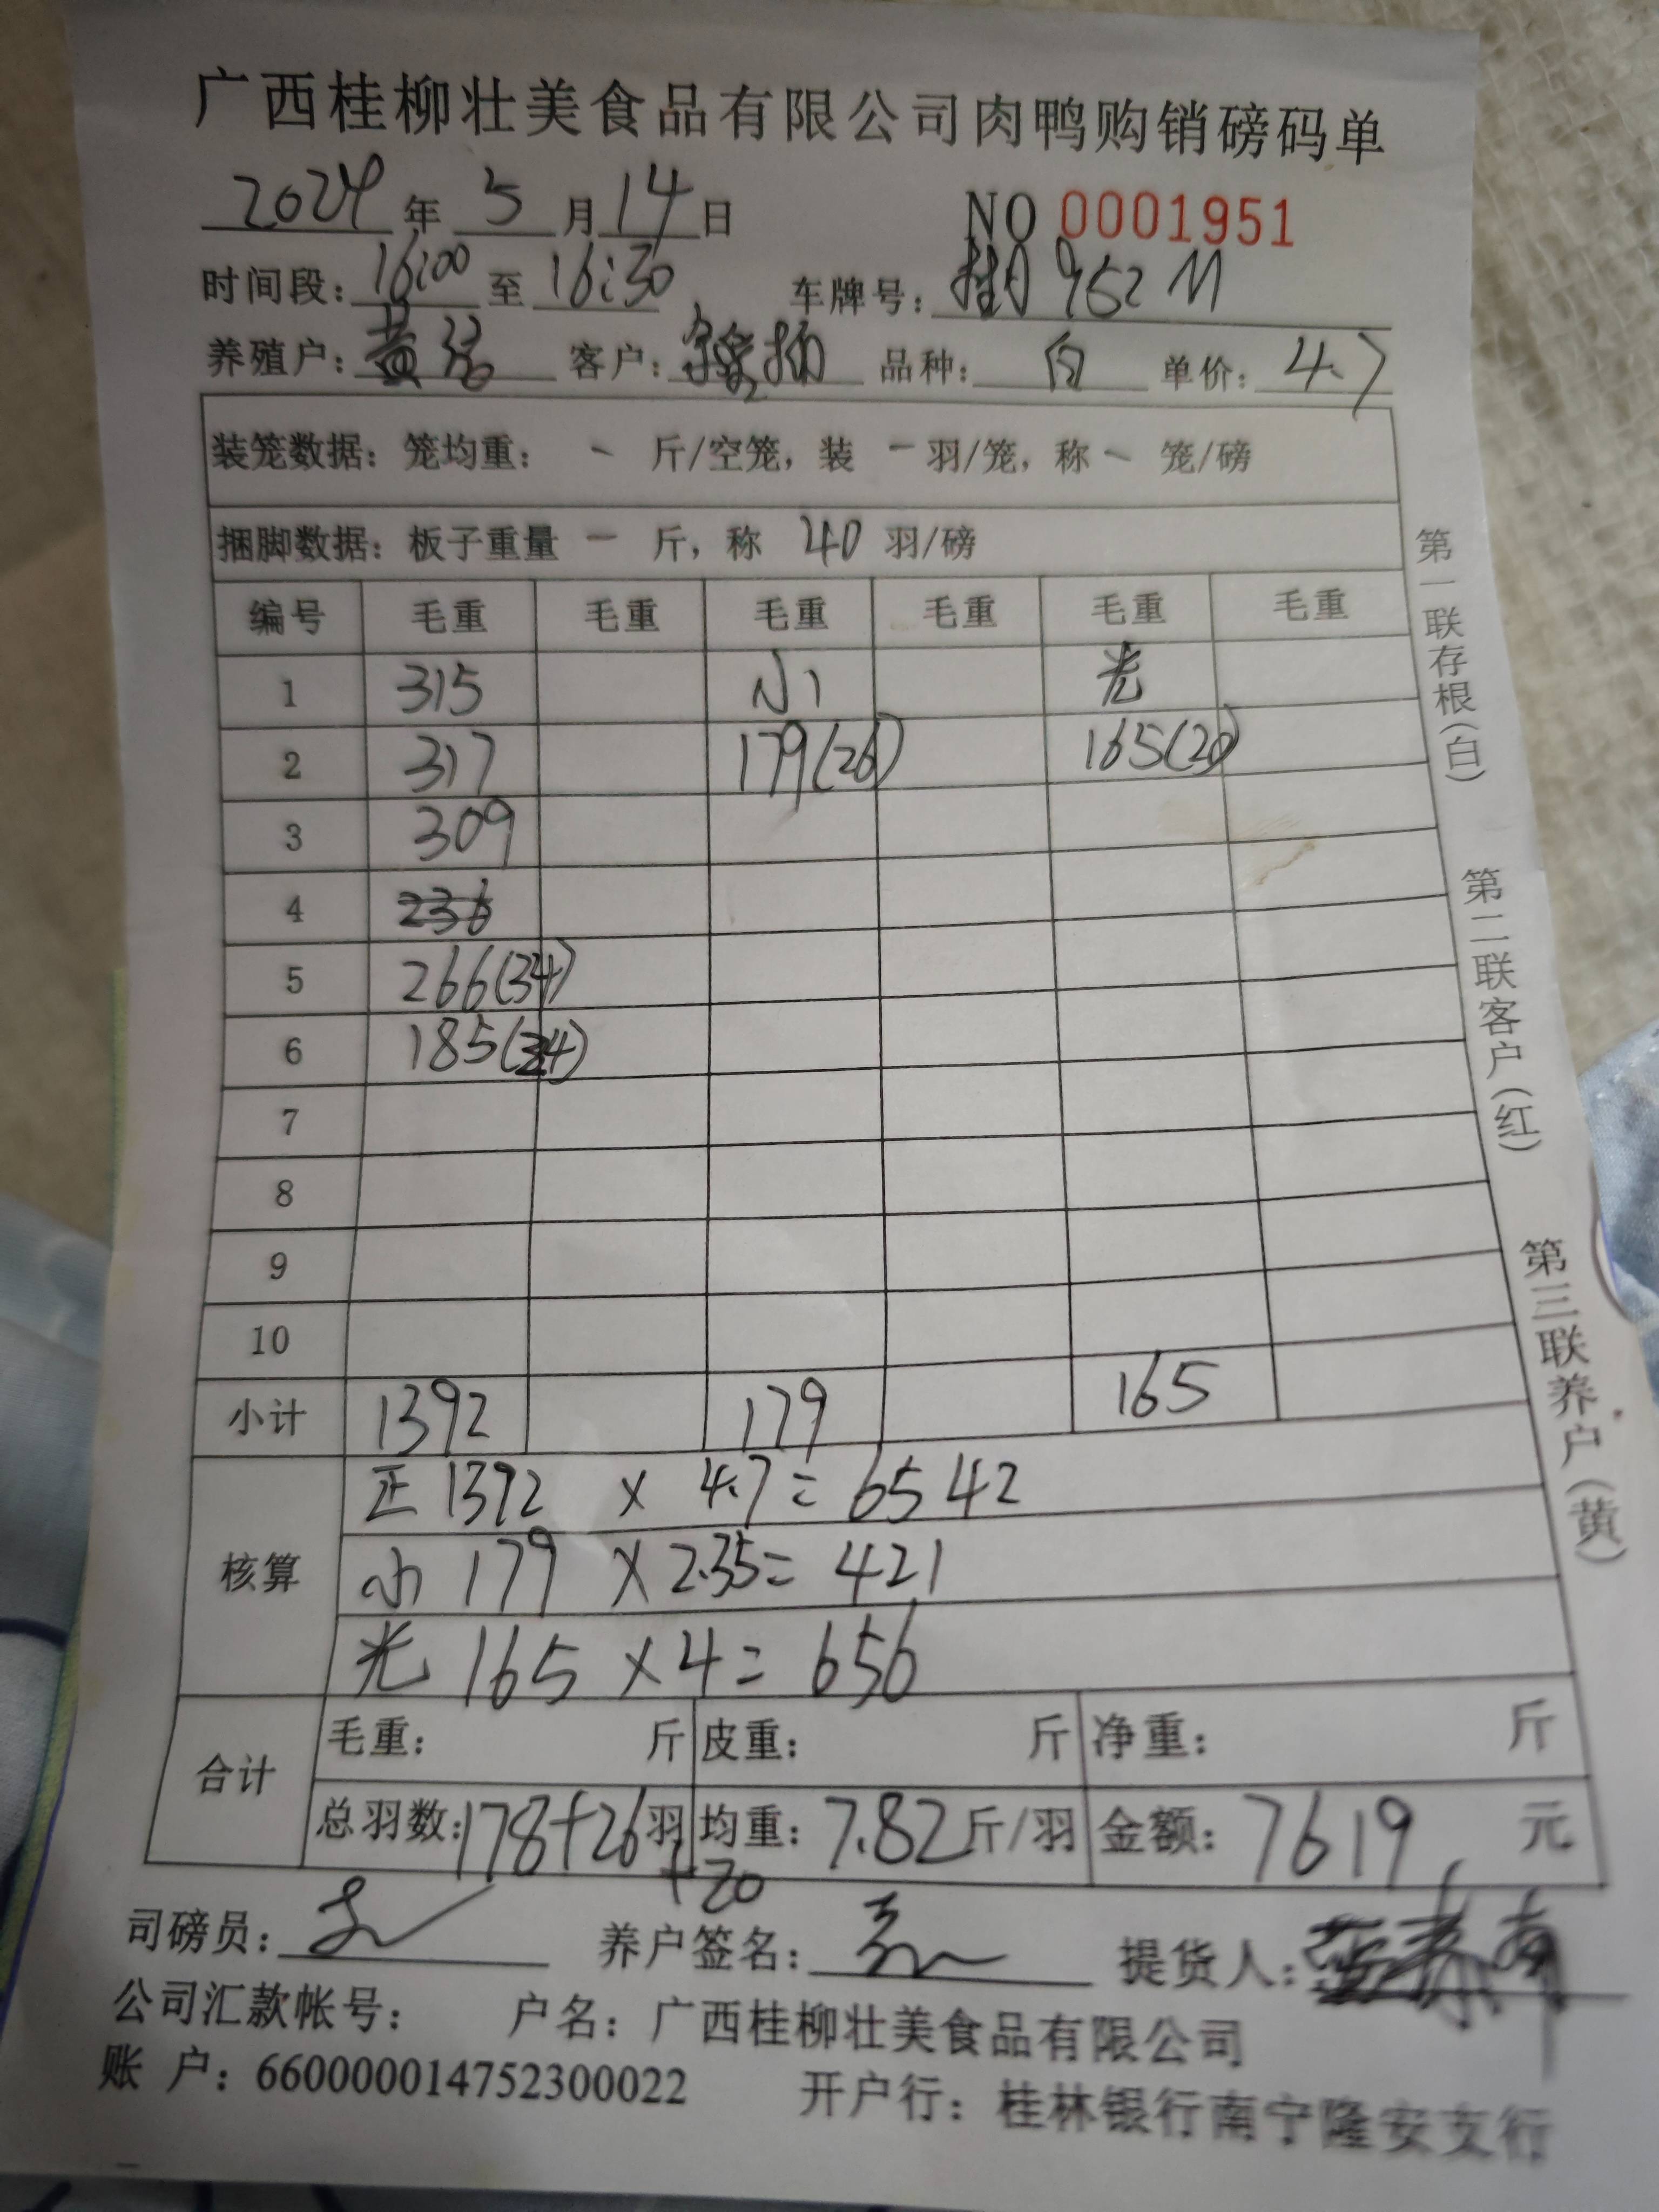 广西桂柳壮美食品有限公司肉鸭购销磅码单
2024年 5 月 14 日 NO 0001951
时间段：16:00 至 16:30 车牌号： 952 M
养殖户：黄 客户： 品种：白 单价：4.7
装笼数据：笼均重： - 斤/空笼，装 - 羽/笼，称 - 笼/磅
捆脚数据：板子重量 - 斤，称 40 羽/磅
编号 毛重 毛重 毛重 毛重 毛重 毛重
1 315 小 光
2 317 179(26) 165(20)
3 309
4 236
5 266(34)
6 185(24)
7
8
9
10
小计 1392 179 165
核算
正 1392 × 4.7 = 6542
小 179 × 2.35 = 421
光 165 × 4 = 656
合计
毛重： 斤 皮重： 斤 净重： 斤
总羽数：178+26羽 均重：7.82斤/羽 金额：7619 元
+20
司磅员： 养户签名： 提货人：
公司汇款帐号： 户名：广西桂柳壮美食品有限公司
账 户：660000014752300022 开户行：桂林银行南宁隆安支行
第一联存根(白) 第二联客户(红) 第三联养户(黄)